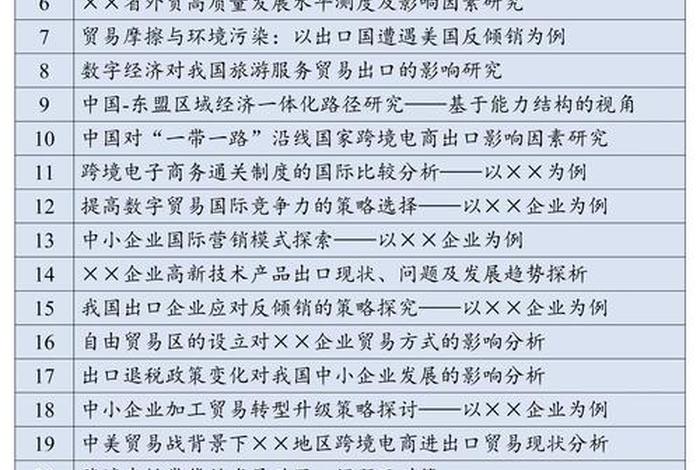 6 ××省外贸高质量发展水平测度及影响因素研究
7 贸易摩擦与环境污染：以出口国遭遇美国反倾销为例
8 数字经济对我国旅游服务贸易出口的影响研究
9 中国-东盟区域经济一体化路径研究——基于能力结构的视角
10 中国对“一带一路”沿线国家跨境电商出口影响因素研究
11 跨境电子商务通关制度的国际比较分析——以××为例
12 提高数字贸易国际竞争力的策略选择——以××企业为例
13 中小企业国际营销模式探索——以××企业为例
14 ××企业高新技术产品出口现状、问题及发展趋势探析
15 我国出口企业应对反倾销的策略探究——以××企业为例
16 自由贸易区的设立对××企业贸易方式的影响分析
17 出口退税政策变化对我国中小企业发展的影响分析
18 中小企业加工贸易转型升级策略探讨——以××企业为例
19 中美贸易战背景下××地区跨境电商进出口贸易现状分析